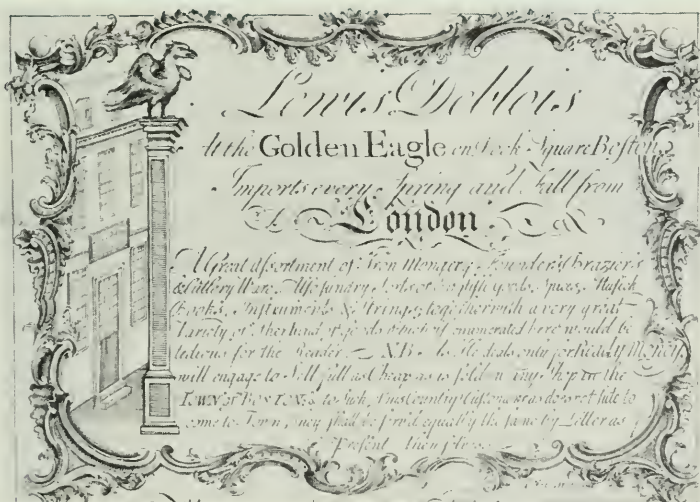 Lewis Deblois
At the Golden Eagle in Dock Square Boston
Imports every Spring and Fall from
London
A Great assortment of Iron Mongery, Founders, Braziers
& Cuttlery Ware. Also sundry sorts of English goods, Spices, Musick
Books, Instruments & Strings; together with a very great
Variety of other kind of goods which if enumerated here would be
tedious for the Reader. N.B. As He deals only for Ready Money
will engage to Sell full as cheap as is sold in any Shop in the
TOWN of BOSTON, & to such of his Country Customers as do not like to
come to Town, they shall be served equally the same by Letter as
present themselves